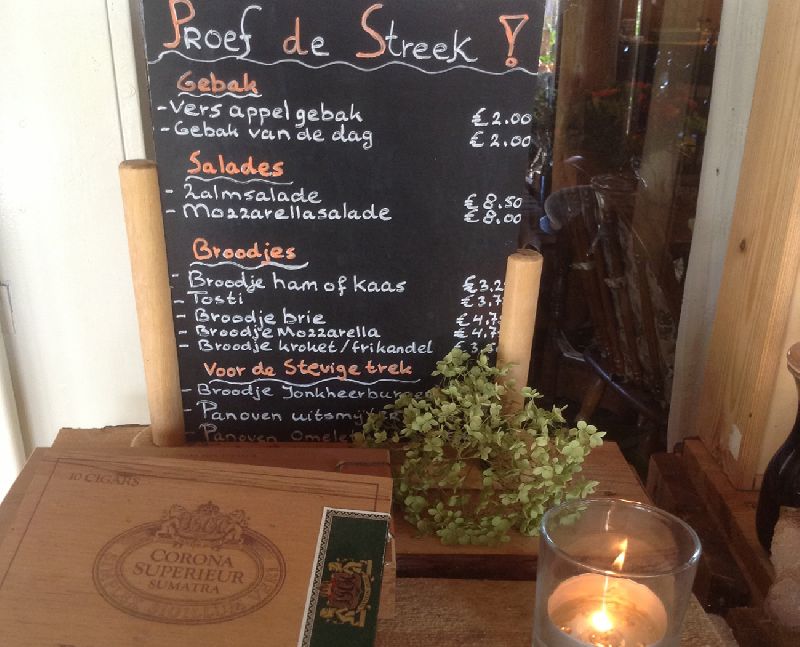 Proef de Streek !
Gebak
- Vers appelgebak € 2.00
- Gebak van de dag € 2.00
Salades
- Zalmsalade € 8.50
- Mozzarellasalade € 8.00
Broodjes
- Broodje ham of kaas
- Tosti
- Broodje brie
- Broodje Mozzarella
- Broodje kroket/frikandel
Voor de Stevige trek
- Broodje Jonkheerburger
- Panoven
- Panoven
10 CIGARS
CORONA
SUPERIEUR
SUMATRA